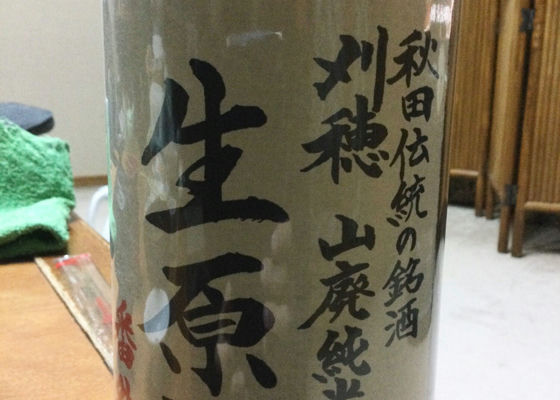 秋田伝統の銘酒
刈穂 山廃純米
生原
番